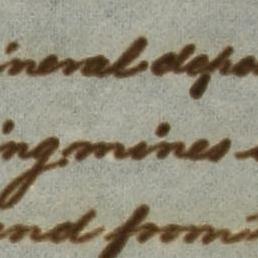 ineral depo
ing mines
and from